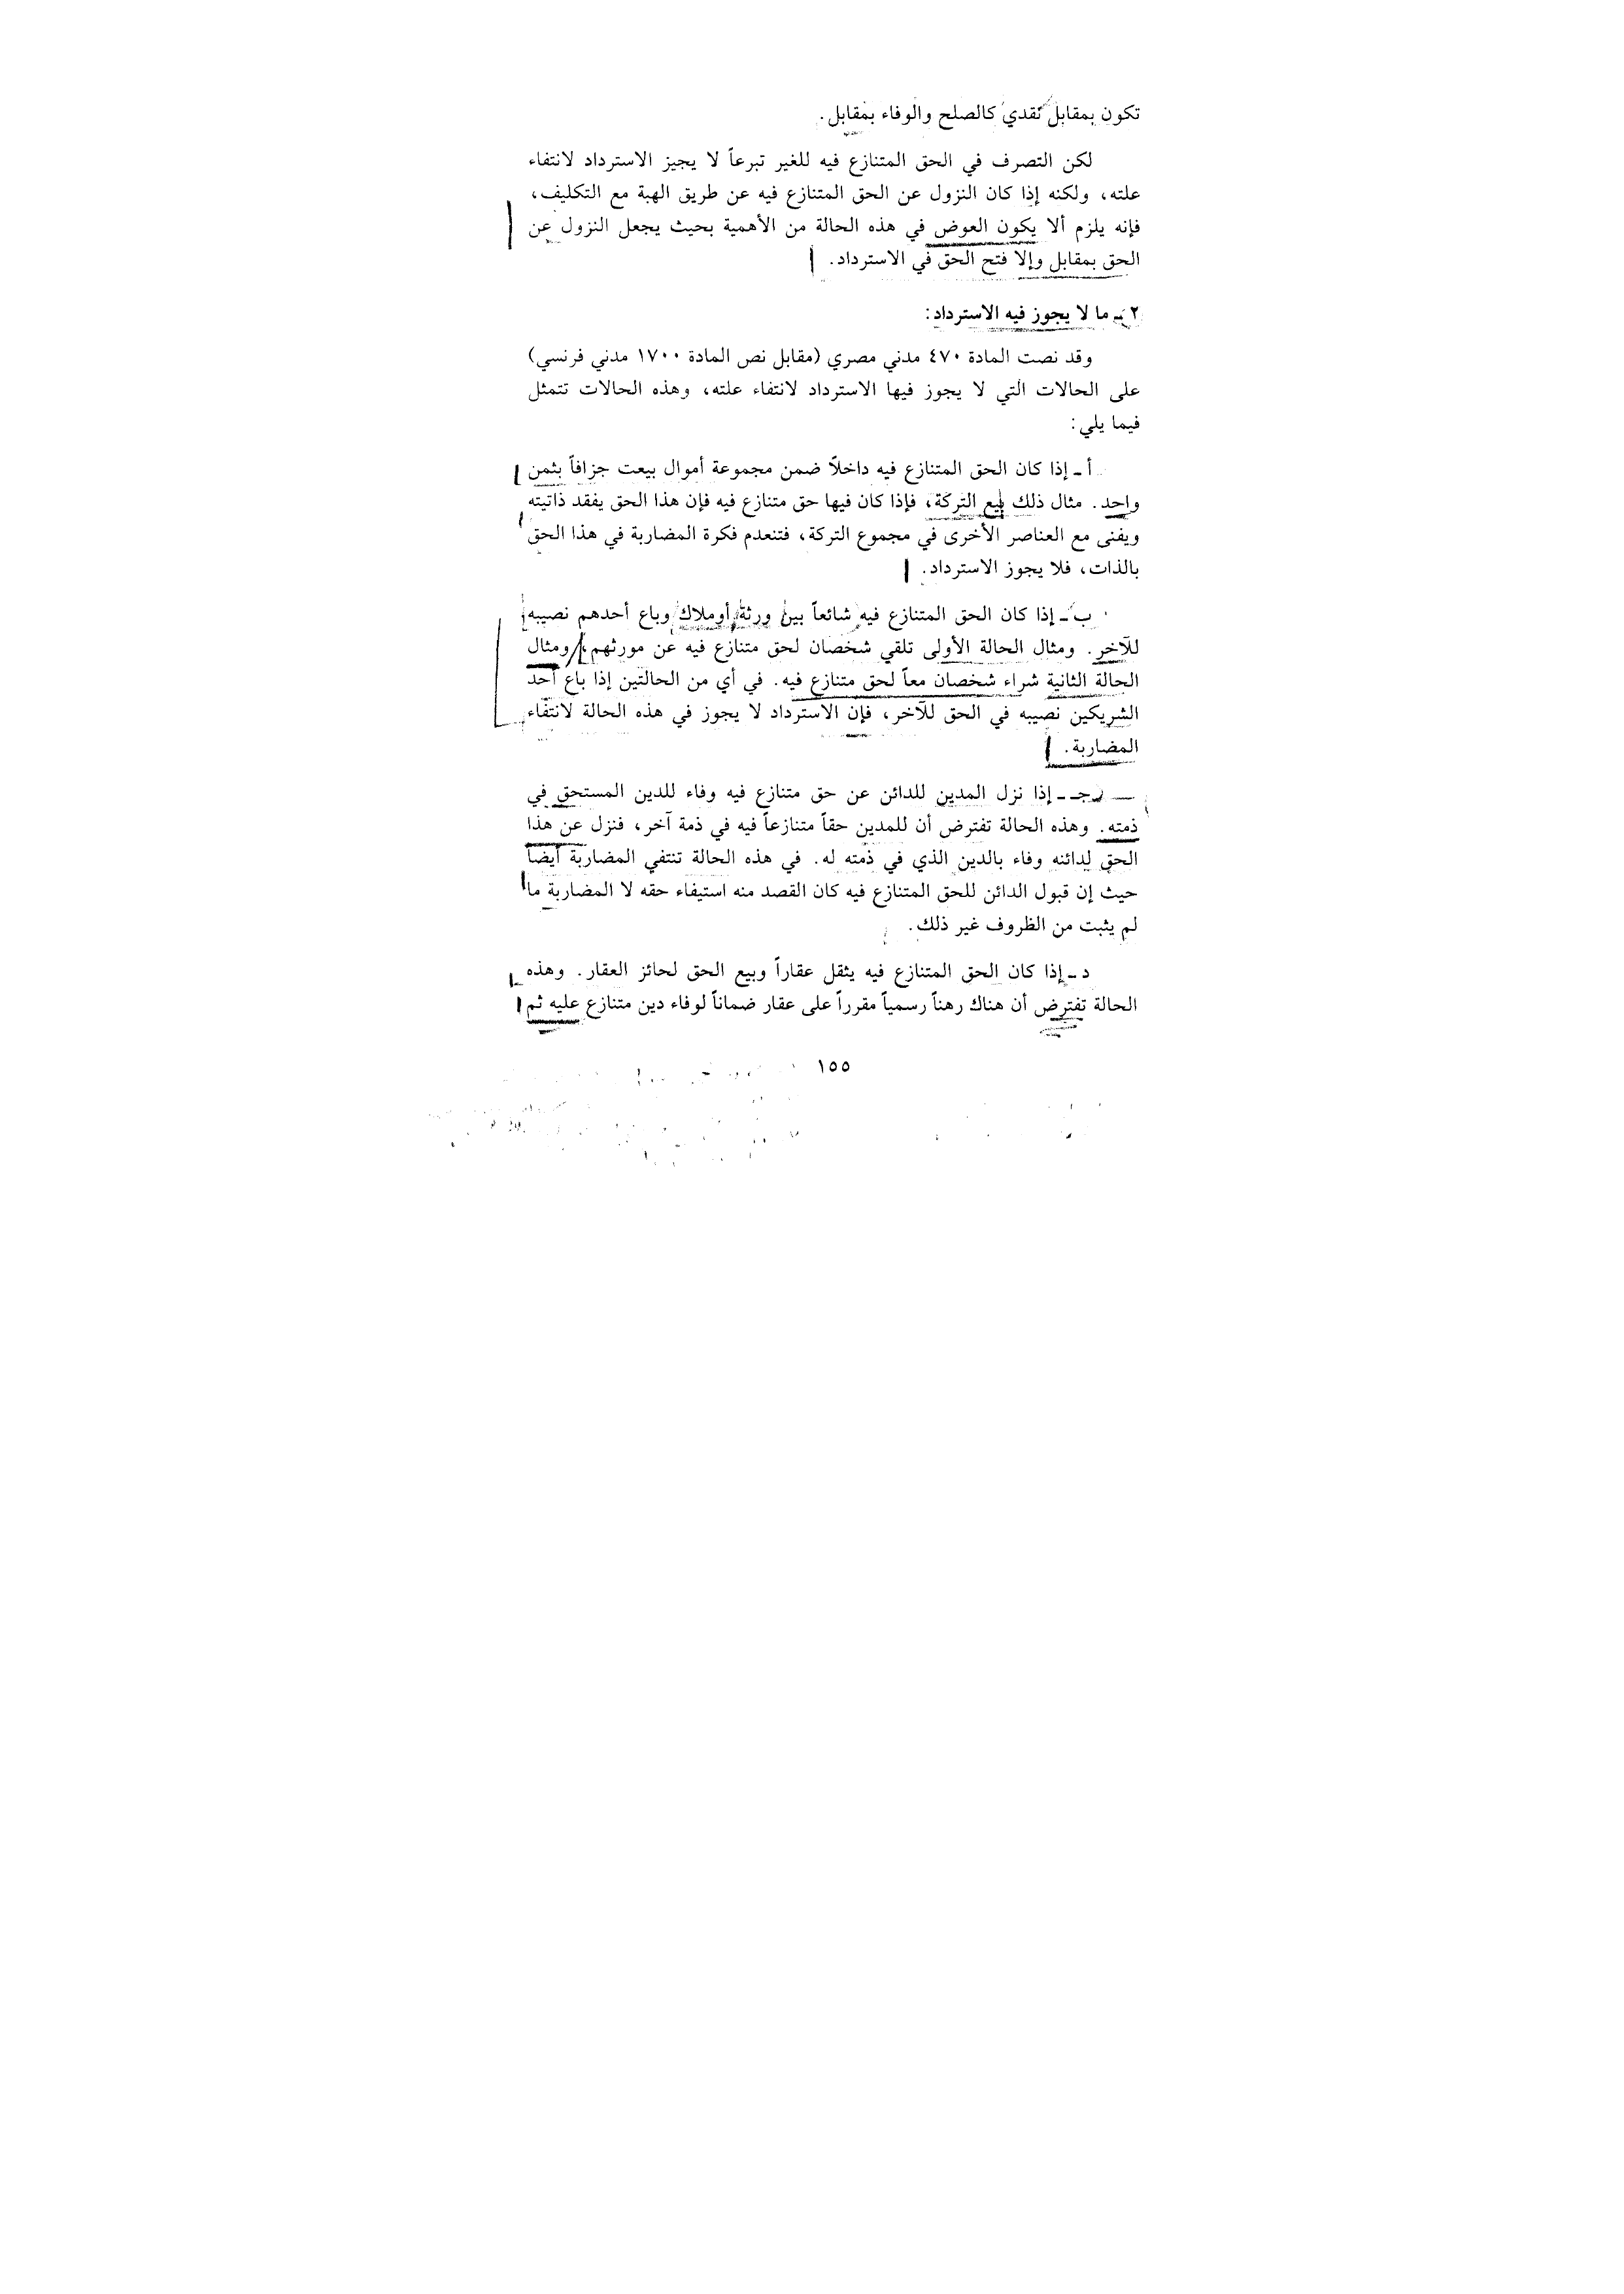 تكون بمقابل نقدي كالصلح والوفاء بمقابل.
لكن التصرف في الحق المتنازع فيه للغير تبرعاً لا يجيز الاسترداد لانتفاء
علته، ولكنه إذا كان النزول عن الحق المتنازع فيه عن طريق الهبة مع التكليف،
فإنه يلزم ألا يكون العوض في هذه الحالة من الأهمية بحيث يجعل النزول عن
الحق بمقابل وإلا فتح الحق في الاسترداد.
٢ ـ ما لا يجوز فيه الاسترداد:
وقد نصت المادة ٤٧٠ مدني مصري (مقابل نص المادة ١٧٠٠ مدني فرنسي)
على الحالات التي لا يجوز فيها الاسترداد لانتفاء علته، وهذه الحالات تتمثل
فيما يلي:
أ ـ إذا كان الحق المتنازع فيه داخلاً ضمن مجموعة أموال بيعت جزافاً بثمن
واحد. مثال ذلك بيع التركة، فإذا كان فيها حق متنازع فيه فإن هذا الحق يفقد ذاتيته
ويفنى مع العناصر الأخرى في مجموع التركة، فتنعدم فكرة المضاربة في هذا الحق
بالذات، فلا يجوز الاسترداد.
ب ـ إذا كان الحق المتنازع فيه شائعاً بين ورثة أو ملاك وباع أحدهم نصيبه
للآخر. ومثال الحالة الأولى تلقي شخصان لحق متنازع فيه عن مورثهم، ومثال
الحالة الثانية شراء شخصان معاً لحق متنازع فيه. في أي من الحالتين إذا باع أحد
الشريكين نصيبه في الحق للآخر، فإن الاسترداد لا يجوز في هذه الحالة لانتفاء
المضاربة.
جـ ـ إذا نزل المدين للدائن عن حق متنازع فيه وفاء للدين المستحق في
ذمته. وهذه الحالة تفترض أن للمدين حقاً متنازعاً فيه في ذمة آخر، فنزل عن هذا
الحق لدائنه وفاء بالدين الذي في ذمته له. في هذه الحالة تنتفي المضاربة أيضاً
حيث إن قبول الدائن للحق المتنازع فيه كان القصد منه استيفاء حقه لا المضاربة ما
لم يثبت من الظروف غير ذلك.
د ـ إذا كان الحق المتنازع فيه يثقل عقاراً وبيع الحق لحائز العقار. وهذه
الحالة تفترض أن هناك رهناً رسمياً مقرراً على عقار ضماناً لوفاء دين متنازع عليه ثم
١٥٥